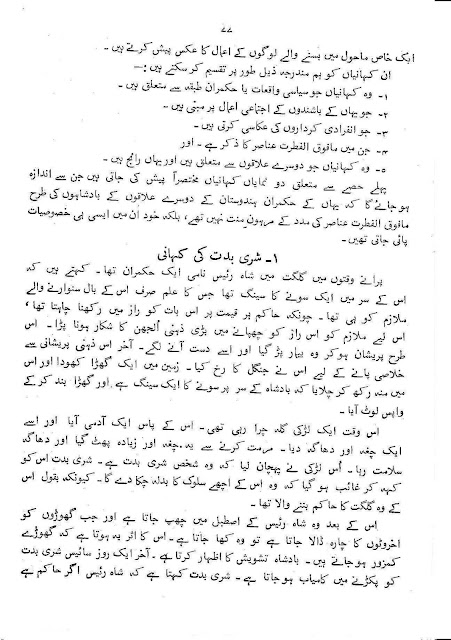 ۷۷
ایک خاص ماحول میں بسنے والے لوگوں کے اعمال کا عکس پیش کرتے ہیں۔
ان کہانیوں کو ہم مندرجہ ذیل طور پر تقسیم کر سکتے ہیں :—
۱۔ وہ کہانیاں جو سیاسی واقعات یا حکمران طبقہ سے متعلق ہیں۔
۲۔ جو یہاں کے باشندوں کے اجتماعی اعمال پر مبنی ہیں۔
۳۔ جو انفرادی کرداروں کی عکاسی کرتی ہیں۔
۴۔ جن میں مافوق الفطرت عناصر کا ذکر ہے۔ اور
۵۔ وہ کہانیاں جو دوسرے علاقوں سے متعلق ہیں اور یہاں رائج ہیں۔
پہلے حصے سے متعلق دو نمایاں کہانیاں مختصراً پیش کی جاتی ہیں جن سے اندازہ
ہو جائے گا کہ یہاں کے حکمران ہندوستان کے دوسرے علاقوں کے بادشاہوں کی طرح
مافوق الفطرت عناصر کی مدد کے مرہون منت نہیں تھے، بلکہ خود ان میں ایسی ہی خصوصیات
پائی جاتی تھیں۔
۱۔ شری بدت کی کہانی
پرانے وقتوں میں گلگت میں شاہ رئیس نامی ایک حکمران تھا۔ کہتے ہیں کہ
اس کے سر میں ایک سونے کا سینگ تھا جس کا علم صرف اس کے بال سنوارنے والے
ملازم کو ہی تھا۔ چونکہ حاکم ہر قیمت پر اس بات کو راز میں رکھنا چاہتا تھا،
اس لیے ملازم کو اس راز کو چھپانے میں بڑی ذہنی الجھن کا شکار ہونا پڑا۔ اس
طرح پریشان ہو کر وہ بیمار پڑ گیا اور اسے دست آنے لگے۔ آخر اس ذہنی پریشانی سے
خلاصی پانے کے لیے اس نے جنگل کا رخ کیا۔ زمین میں ایک گھڑا کھودا اور اس
میں منہ رکھ کر چلایا کہ بادشاہ کے سر پر سونے کا ایک سینگ ہے اور گھڑا بند کر کے
واپس لوٹ آیا۔
اس وقت ایک لڑکی گلہ چرا رہی تھی۔ اس کے پاس ایک آدمی آیا اور اسے
ایک چغہ اور دھاگہ دیا۔ مرمت کرنے سے یہ چغہ اور زیادہ پھٹ گیا اور دھاگہ
سلامت رہا۔ اُس لڑکی نے پہچان لیا کہ وہ شخص شری بدت ہے۔ شری بدت اس کو
کہہ کر غائب ہو گیا کہ وہ اس کے اچھے سلوک کا بدلہ چکا دے گا۔ کیونکہ بقول اس
کے وہ گلگت کا حاکم بننے والا تھا۔
اس کے بعد وہ شاہ رئیس کے اصطبل میں چھپ جاتا ہے اور جب گھوڑوں کو
اخروٹوں کا چارہ ڈالا جاتا ہے تو وہ کھا جاتا ہے۔ اس کا اثر یہ ہوتا ہے کہ گھوڑے
کمزور ہو جاتے ہیں۔ بادشاہ تشویش کا اظہار کرتا ہے۔ آخر ایک روز سائیس شری بدت
کو پکڑنے میں کامیاب ہو جاتا ہے۔ شری بدت کہتا ہے کہ شاہ رئیس اگر حاکم ہے